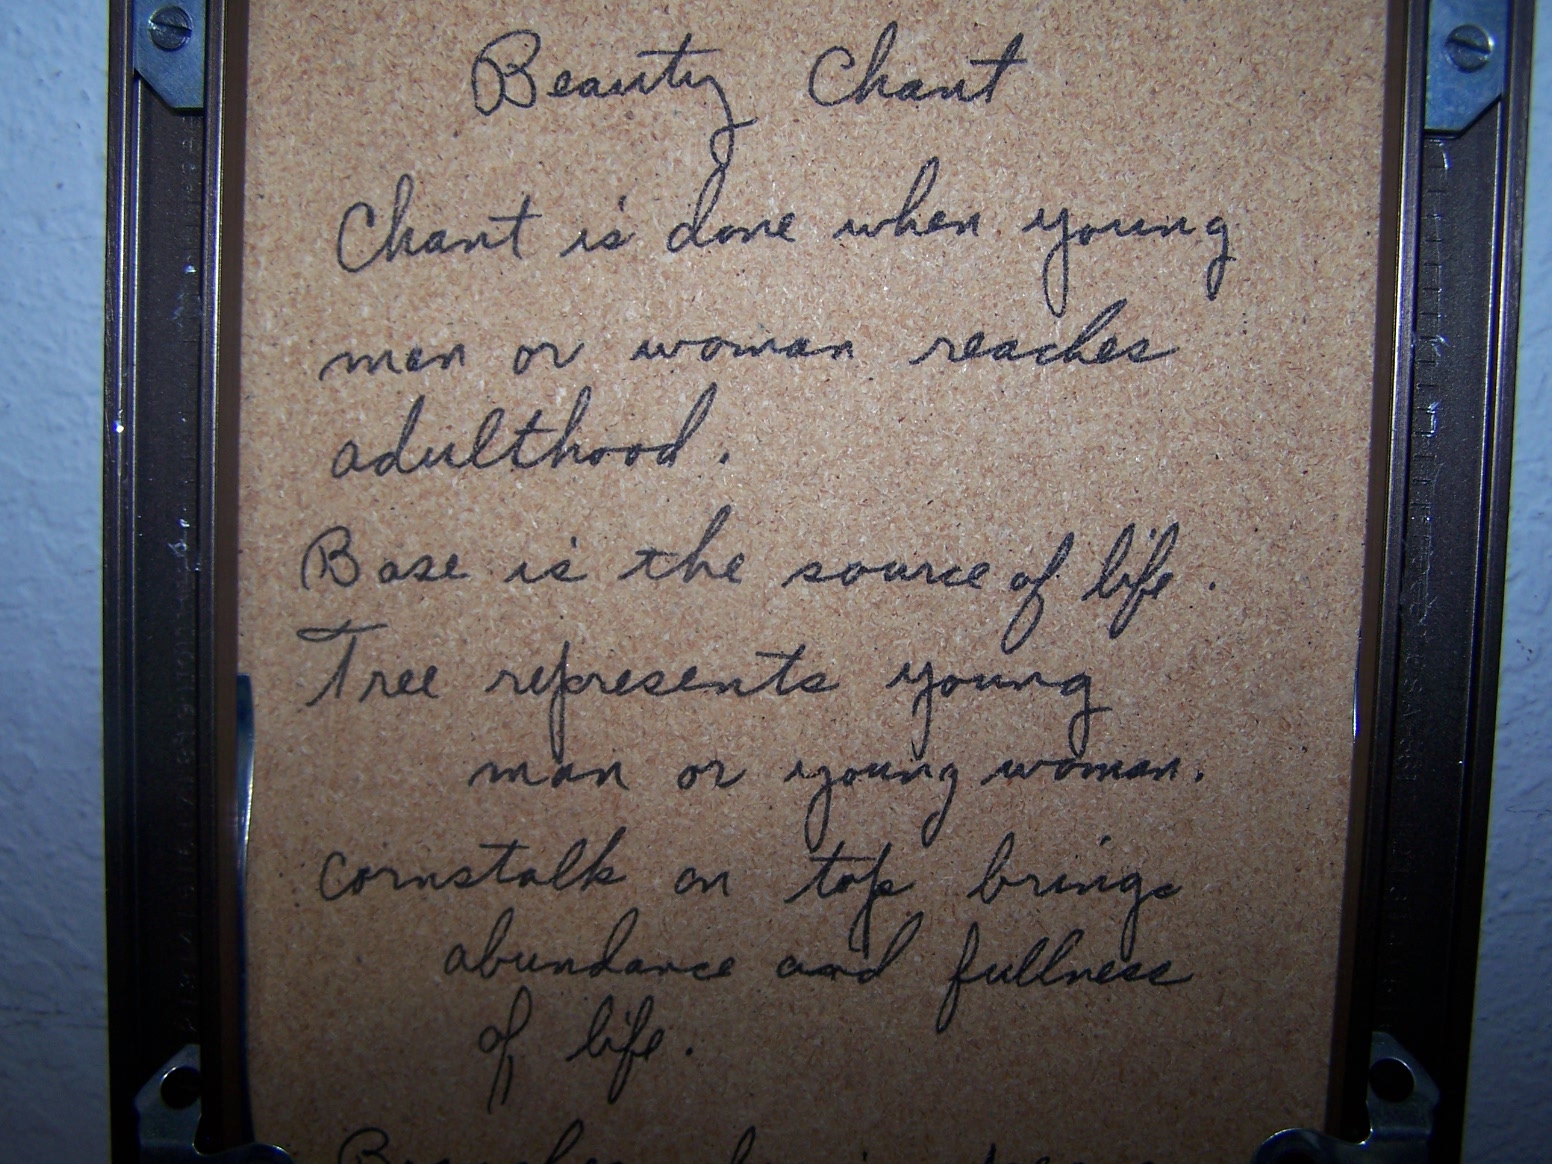 Beauty Chant
Chant is done when young
men or woman reaches
adulthood.
Base is the source of life.
Tree represents young
man or young woman.
Cornstalk on top brings
abundance and fullness
of life.